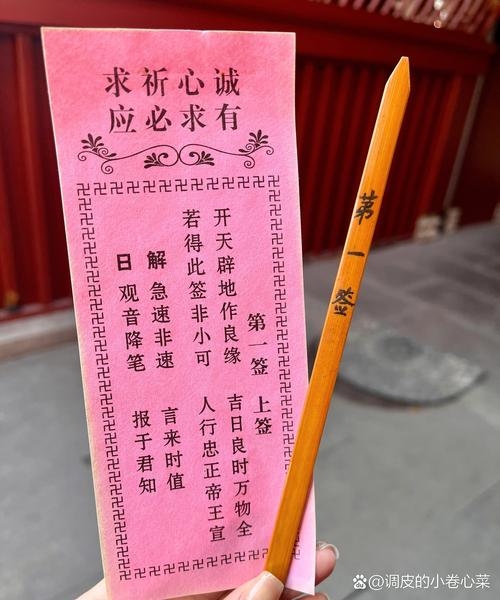 诚心祈求
有求必应
第一签 上签
开天辟地作良缘 吉日良时万物全
若得此签非小可 人行忠正帝王宣
解 急速非速 言来时值
日 观音降笔 报于君知
第一签
@调皮的小卷心菜